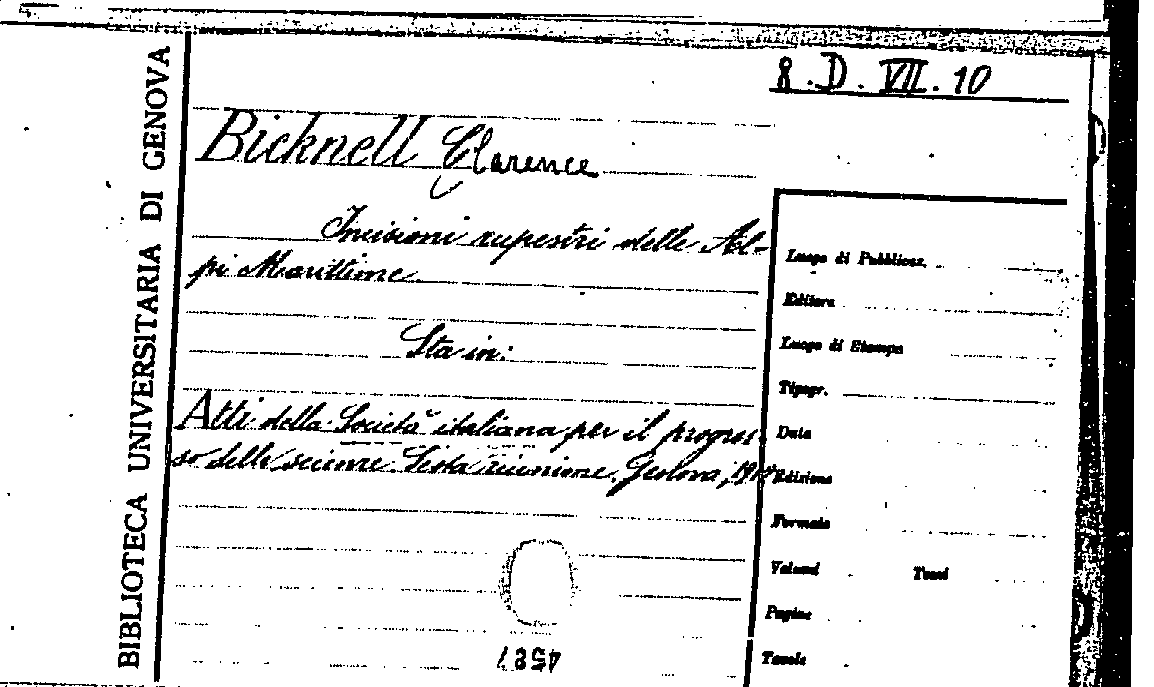 8.D.VII.10
BIBLIOTECA UNIVERSITARIA DI GENOVA
Bicknell Clarence
Incisioni rupestri delle Al-
pi Marittime
Sta in:
Atti della Società italiana per il progres-
so delle scienze. Sesta riunione. Genova,
Luogo di Pubblicaz.
Editore
Luogo di Stampa
Tipogr.
Data
Edizione
Formato
Volumi Tomi
Pagine
Tavole
4587